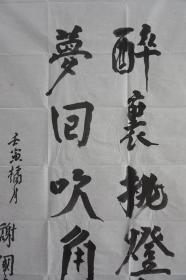 醉裏挑燈
夢回吹角
壬寅橘月
謝